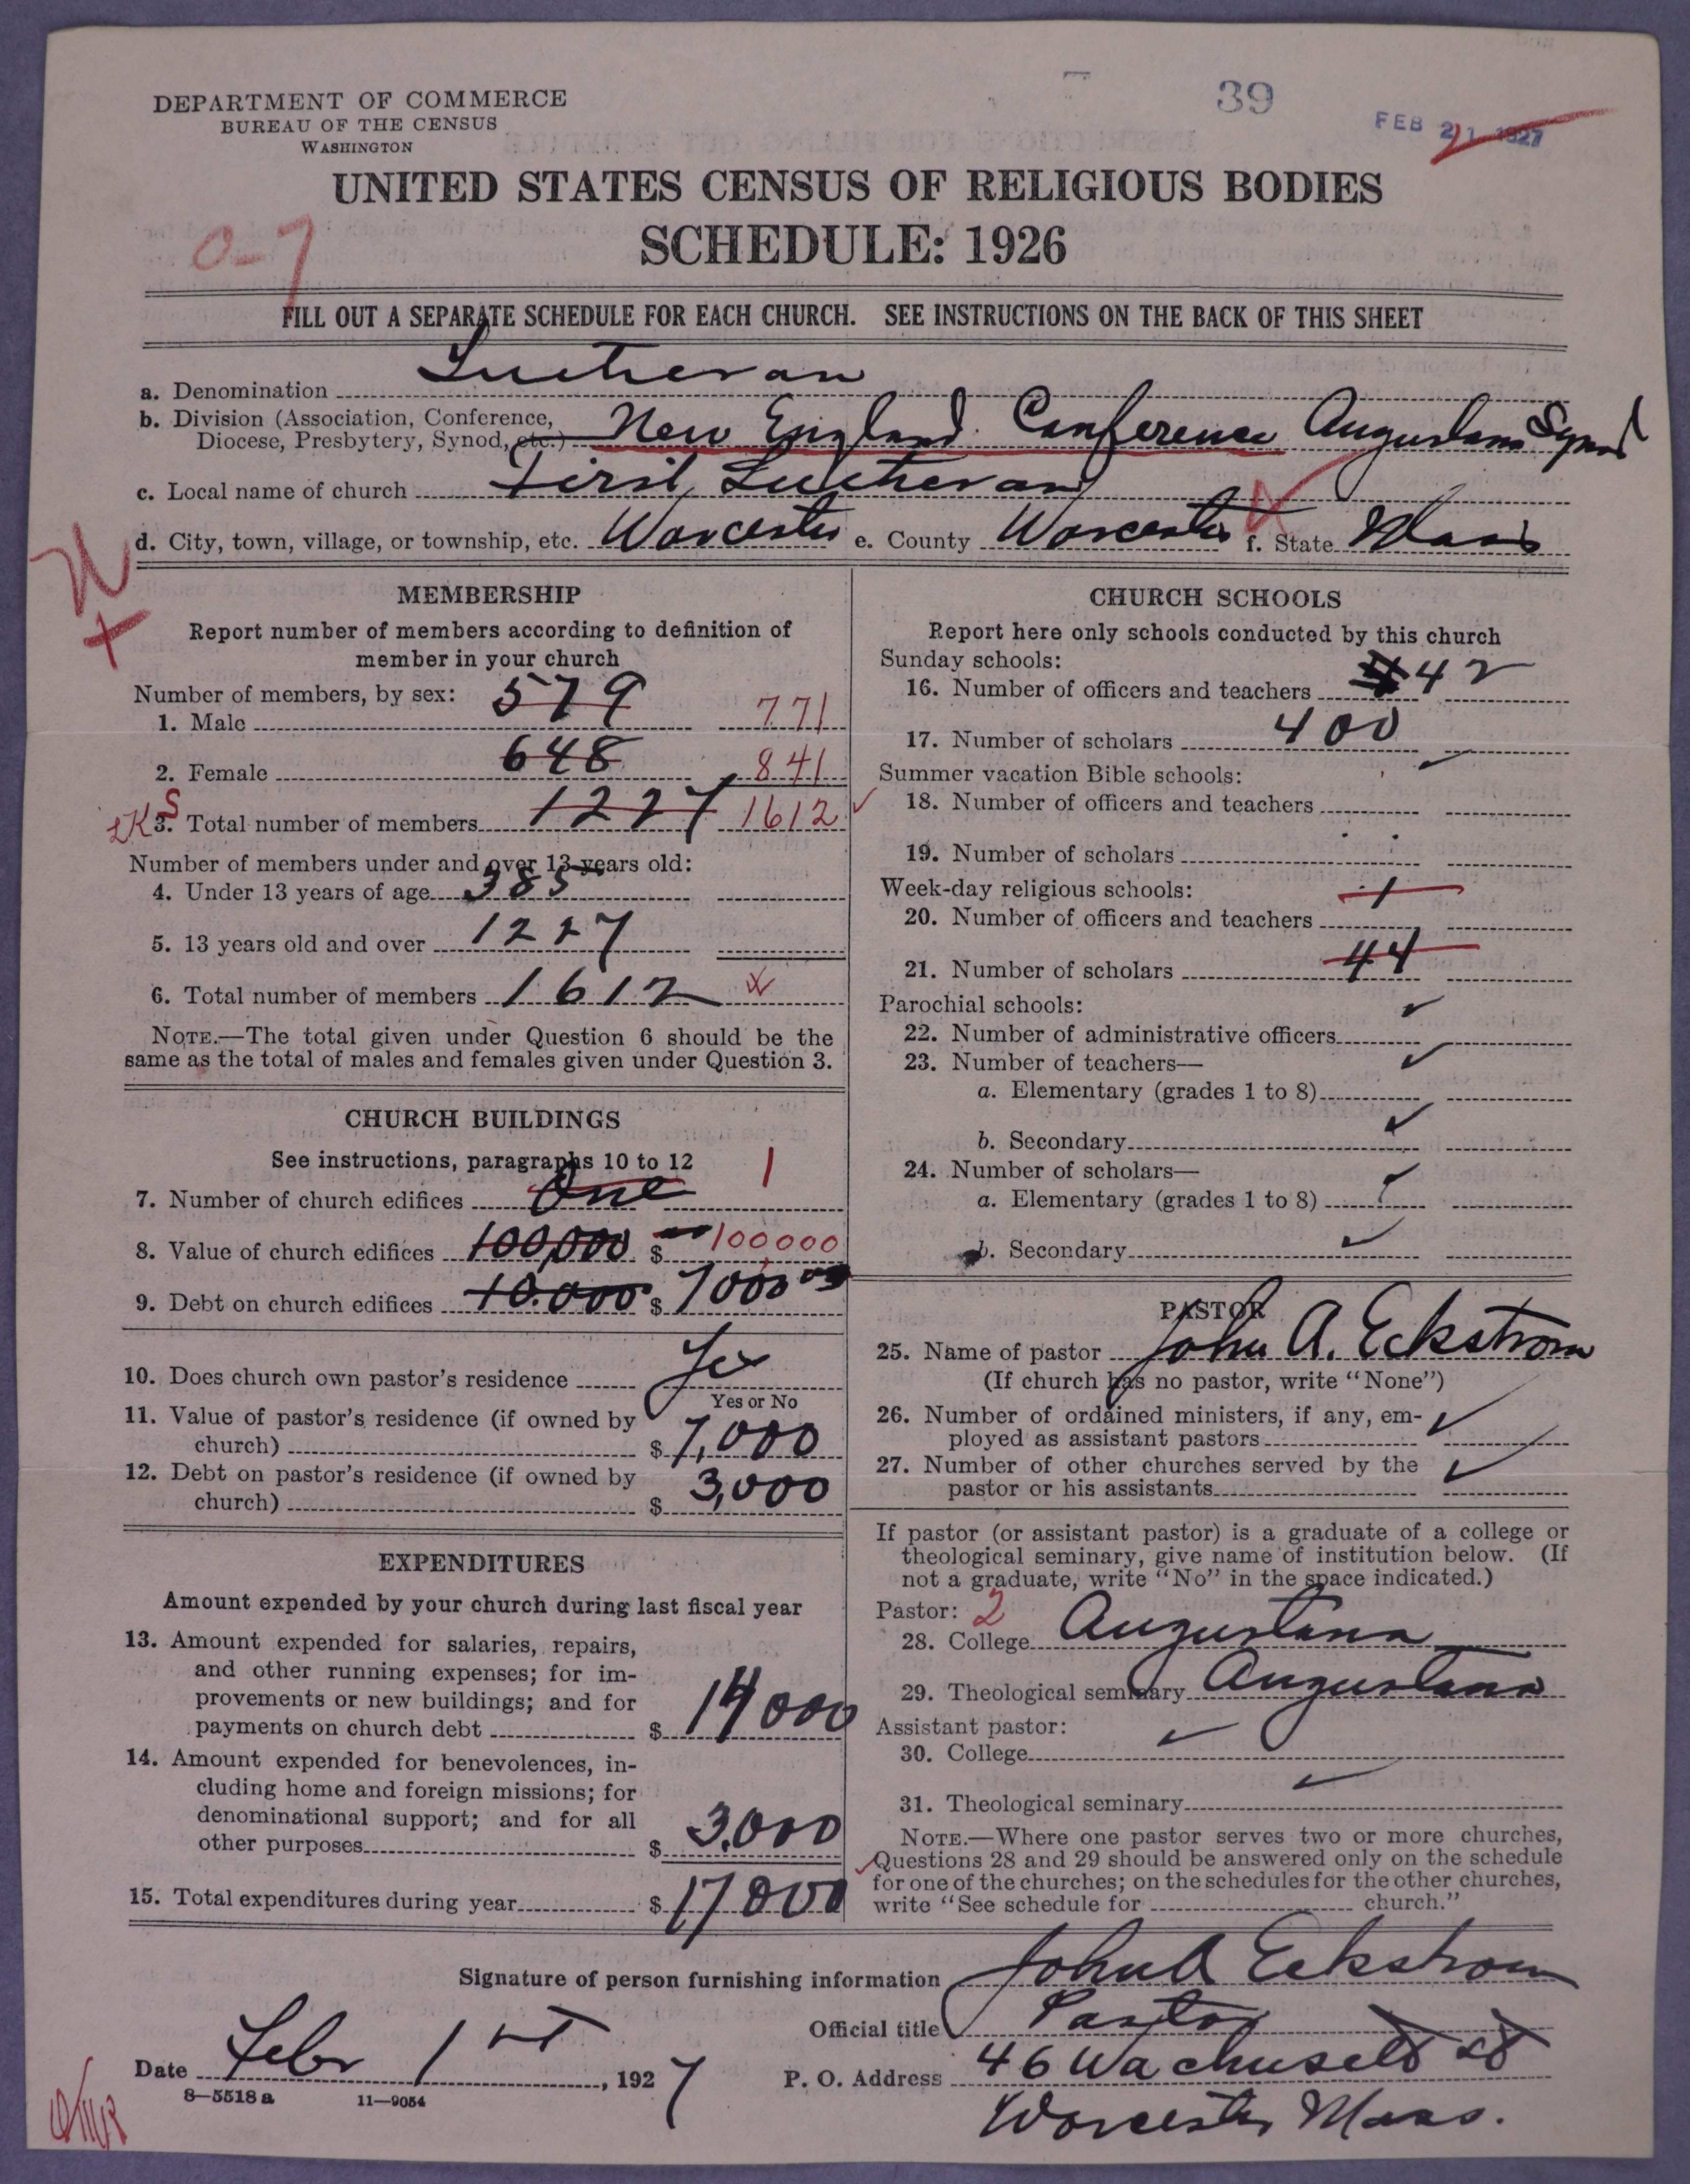 39
FEB 21 1927
DEPARTMENT OF COMMERCE
BUREAU OF THE CENSUS
WASHINGTON
UNITED STATES CENSUS OF RELIGIOUS BODIES
SCHEDULE: 1926
0-7
FILL OUT A SEPARATE SCHEDULE FOR EACH CHURCH. SEE INSTRUCTIONS ON THE BACK OF THIS SHEET
a. Denomination Lutheran
b. Division (Association, Conference,
Diocese, Presbytery, Synod, etc.) New England Conference Augustana Synod
c. Local name of church First Lutheran
d. City, town, village, or township, etc. Worcester e. County Worcester f. State Mass
MEMBERSHIP
Report number of members according to definition of
member in your church
Number of members, by sex:
1. Male 579 771
2. Female 648 841
3. Total number of members 1227 1612
Number of members under and over 13 years old:
4. Under 13 years of age 385
5. 13 years old and over 1227
6. Total number of members 1612
NOTE.—The total given under Question 6 should be the
same as the total of males and females given under Question 3.
CHURCH BUILDINGS
See instructions, paragraphs 10 to 12
7. Number of church edifices One 1
8. Value of church edifices 100,000 $ 100,000
9. Debt on church edifices 10.000 $ 7000
10. Does church own pastor's residence Yes
Yes or No
11. Value of pastor's residence (if owned by
church) $ 7,000
12. Debt on pastor's residence (if owned by
church) $ 3,000
EXPENDITURES
Amount expended by your church during last fiscal year
13. Amount expended for salaries, repairs,
and other running expenses; for im-
provements or new buildings; and for
payments on church debt $ 14000
14. Amount expended for benevolences, in-
cluding home and foreign missions; for
denominational support; and for all
other purposes $ 3,000
15. Total expenditures during year $ 17000
CHURCH SCHOOLS
Report here only schools conducted by this church
Sunday schools:
16. Number of officers and teachers 42
17. Number of scholars 400
Summer vacation Bible schools:
18. Number of officers and teachers
19. Number of scholars
Week-day religious schools:
20. Number of officers and teachers 1
21. Number of scholars 44
Parochial schools:
22. Number of administrative officers
23. Number of teachers—
a. Elementary (grades 1 to 8)
b. Secondary
24. Number of scholars—
a. Elementary (grades 1 to 8)
b. Secondary
PASTOR
25. Name of pastor John A. Eckstrom
(If church has no pastor, write "None")
26. Number of ordained ministers, if any, em-
ployed as assistant pastors
27. Number of other churches served by the
pastor or his assistants
If pastor (or assistant pastor) is a graduate of a college or
theological seminary, give name of institution below. (If
not a graduate, write "No" in the space indicated.)
Pastor: 2
28. College Augustana
29. Theological seminary Augustana
Assistant pastor:
30. College
31. Theological seminary
NOTE.—Where one pastor serves two or more churches,
Questions 28 and 29 should be answered only on the schedule
for one of the churches; on the schedules for the other churches,
write "See schedule for church."
Signature of person furnishing information John A Eckstrom
Official title Pastor
Date Febr 1st, 1927
P. O. Address 46 Wachusett St
Worcester Mass.
8—5518a 11—9054